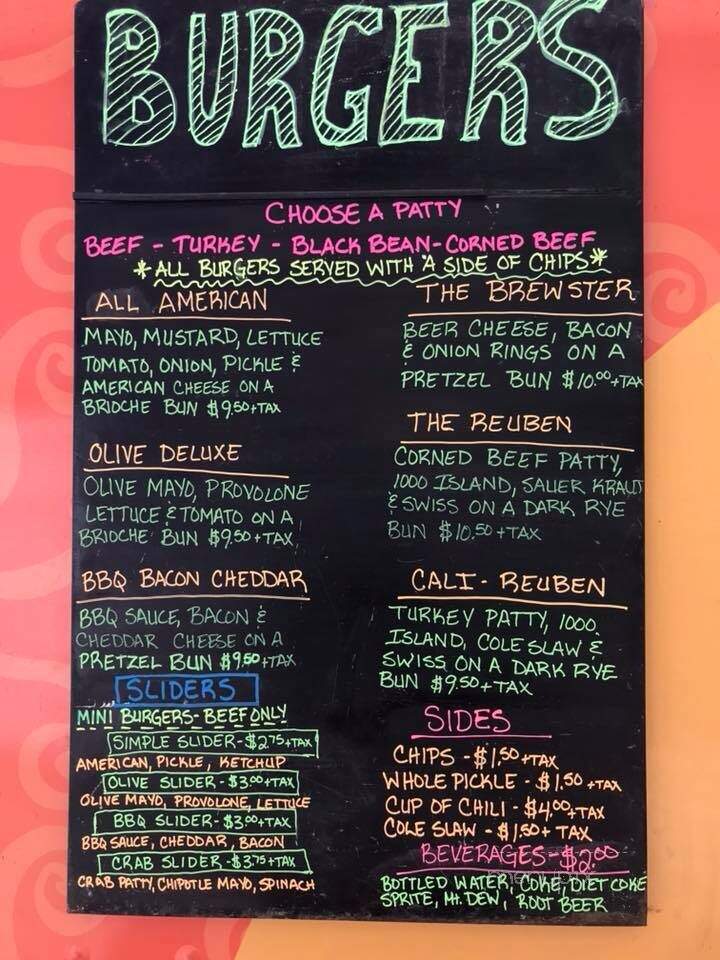 BURGERS
CHOOSE A PATTY
BEEF - TURKEY - BLACK BEAN - CORNED BEEF
*ALL BURGERS SERVED WITH A SIDE OF CHIPS*
ALL AMERICAN
MAYO, MUSTARD, LETTUCE
TOMATO, ONION, PICKLE &
AMERICAN CHEESE ON A
BRIOCHE BUN $9.50+TAX
OLIVE DELUXE
OLIVE MAYO, PROVOLONE
LETTUCE & TOMATO ON A
BRIOCHE BUN $9.50+TAX
BBQ BACON CHEDDAR
BBQ SAUCE, BACON &
CHEDDAR CHEESE ON A
PRETZEL BUN $9.50+TAX
SLIDERS
MINI BURGERS - BEEF ONLY
SIMPLE SLIDER - $2.75+TAX
AMERICAN, PICKLE, KETCHUP
OLIVE SLIDER - $3.00+TAX
OLIVE MAYO, PROVOLONE, LETTUCE
BBQ SLIDER - $3.00+TAX
BBQ SAUCE, CHEDDAR, BACON
CRAB SLIDER - $3.75+TAX
CRAB PATTY, CHIPOTLE MAYO, SPINACH
THE BREWSTER
BEER CHEESE, BACON
& ONION RINGS ON A
PRETZEL BUN $10.00+TAX
THE REUBEN
CORNED BEEF PATTY,
1000 ISLAND, SAUER KRAUT
& SWISS ON A DARK RYE
BUN $10.50+TAX
CALI-REUBEN
TURKEY PATTY, 1000
ISLAND, COLE SLAW &
SWISS ON A DARK RYE
BUN $9.50+TAX
SIDES
CHIPS - $1.50+TAX
WHOLE PICKLE - $1.50+TAX
CUP OF CHILI - $4.00+TAX
COLE SLAW - $1.50+TAX
BEVERAGES - $2.00
BOTTLED WATER, COKE, DIET COKE
SPRITE, Mt. DEW, ROOT BEER